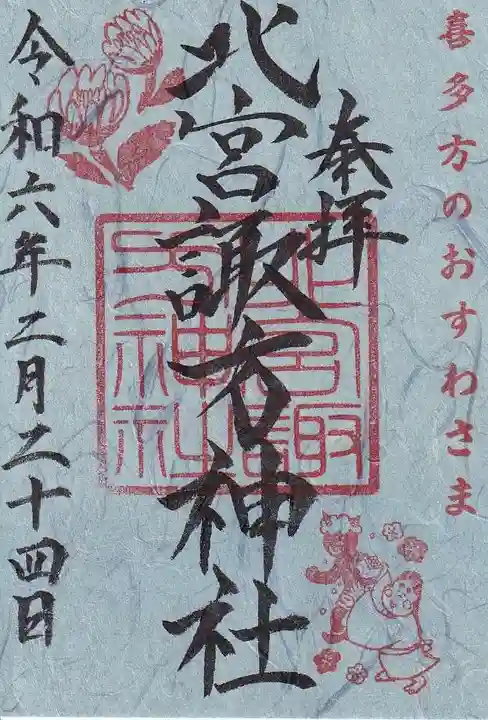 喜多方のおすわさま
奉拝
北宮諏方神社
令和六年二月二十四日
北宮諏
方神社